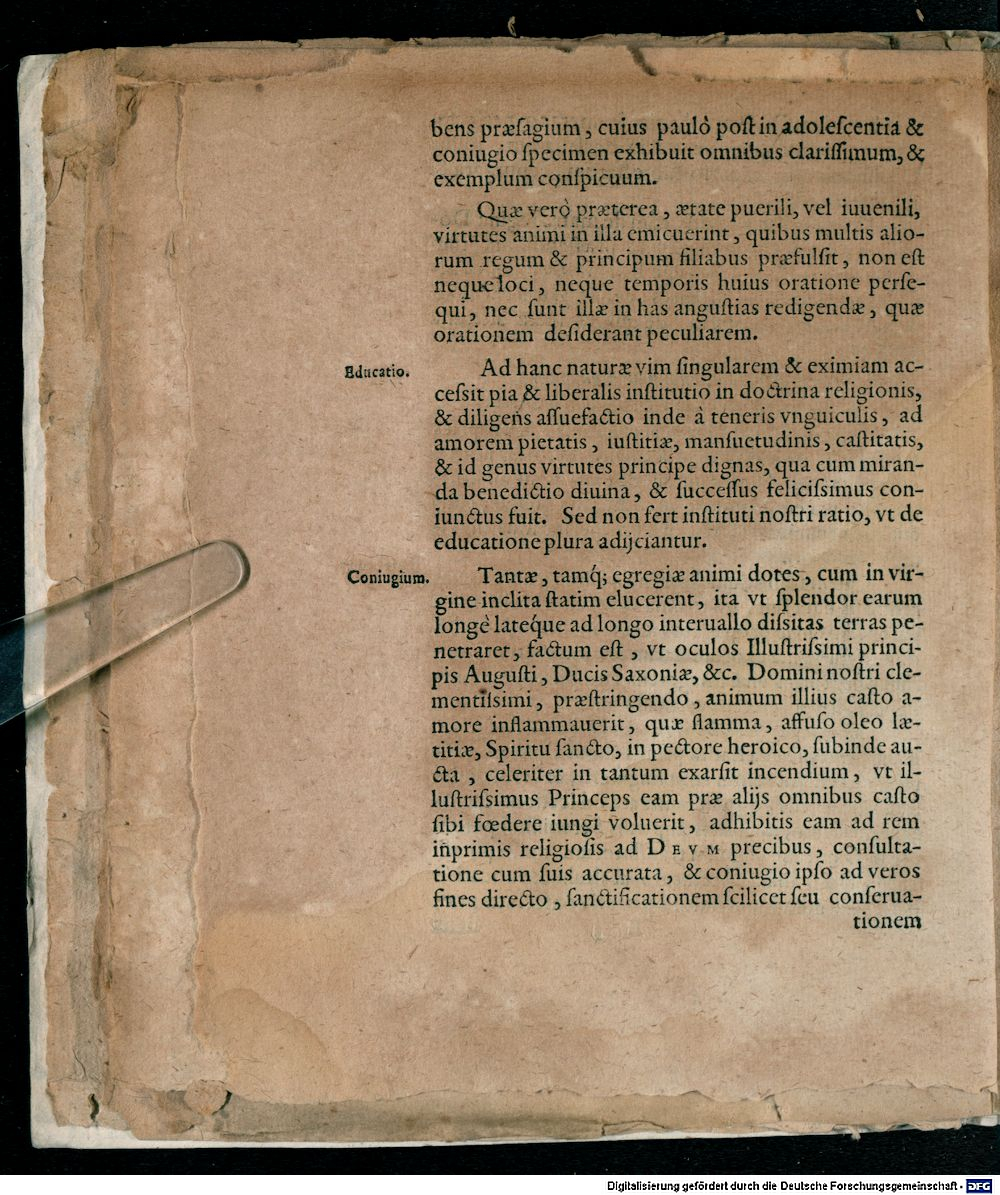 bens præſagium, cuius paulò poſt in adoleſcentiâ &
coniugio ſpecimen exhibuit omnibus clariſſimum, &
exemplum conſpicuum.
Quæ verò præterea, ætate puerili, vel iuuenili,
virtutes animi in illa emicuerint, quibus multis alio-
rum regum & principum filiabus præfulſit, non eſt
neque loci, neque temporis huius oratione perſe-
qui, nec ſunt illæ in has anguſtias redigendæ, quæ
orationem deſiderant peculiarem.
Educatio.
Ad hanc naturæ vim ſingularem & eximiam ac-
ceſsit pia & liberalis inſtitutio in doctrina religionis,
& diligens aſſuefactio inde à teneris vnguiculis, ad
amorem pietatis, iuſtitiæ, manſuetudinis, caſtitatis,
& id genus virtutes principe dignas, qua cum miran-
da benedictio diuina, & ſucceſſus feliciſsimus con-
iunctus fuit. Sed non fert inſtituti noſtri ratio, vt de
educatione plura adijciantur.
Coniugium.
Tantæ, tamq́; egregiæ animi dotes, cum in vir-
gine inclita ſtatim elucerent, ita vt ſplendor earum
longè latéque ad longo interuallo diſsitas terras pe-
netraret, factum eſt, vt oculos Illuſtriſsimi princi-
pis Auguſti, Ducis Saxoniæ, &c. Domini noſtri cle-
mentiſsimi, præſtringendo, animum illius caſto a-
more inflammauerit, quæ flamma, affuſo oleo læ-
titiæ, Spiritu ſancto, in pectore heroico, ſubinde au-
cta, celeriter in tantum exarſit incendium, vt il-
luſtriſsimus Princeps eam præ alijs omnibus caſto
ſibi fœdere iungi voluerit, adhibitis eam ad rem
inprimis religioſis ad DEVM precibus, conſulta-
tione cum ſuis accurata, & coniugio ipſo ad veros
fines directo, ſanctificationem ſcilicet ſeu conſerua-
tionem
Digitalisierung gefördert durch die Deutsche Forschungsgemeinschaft - DFG